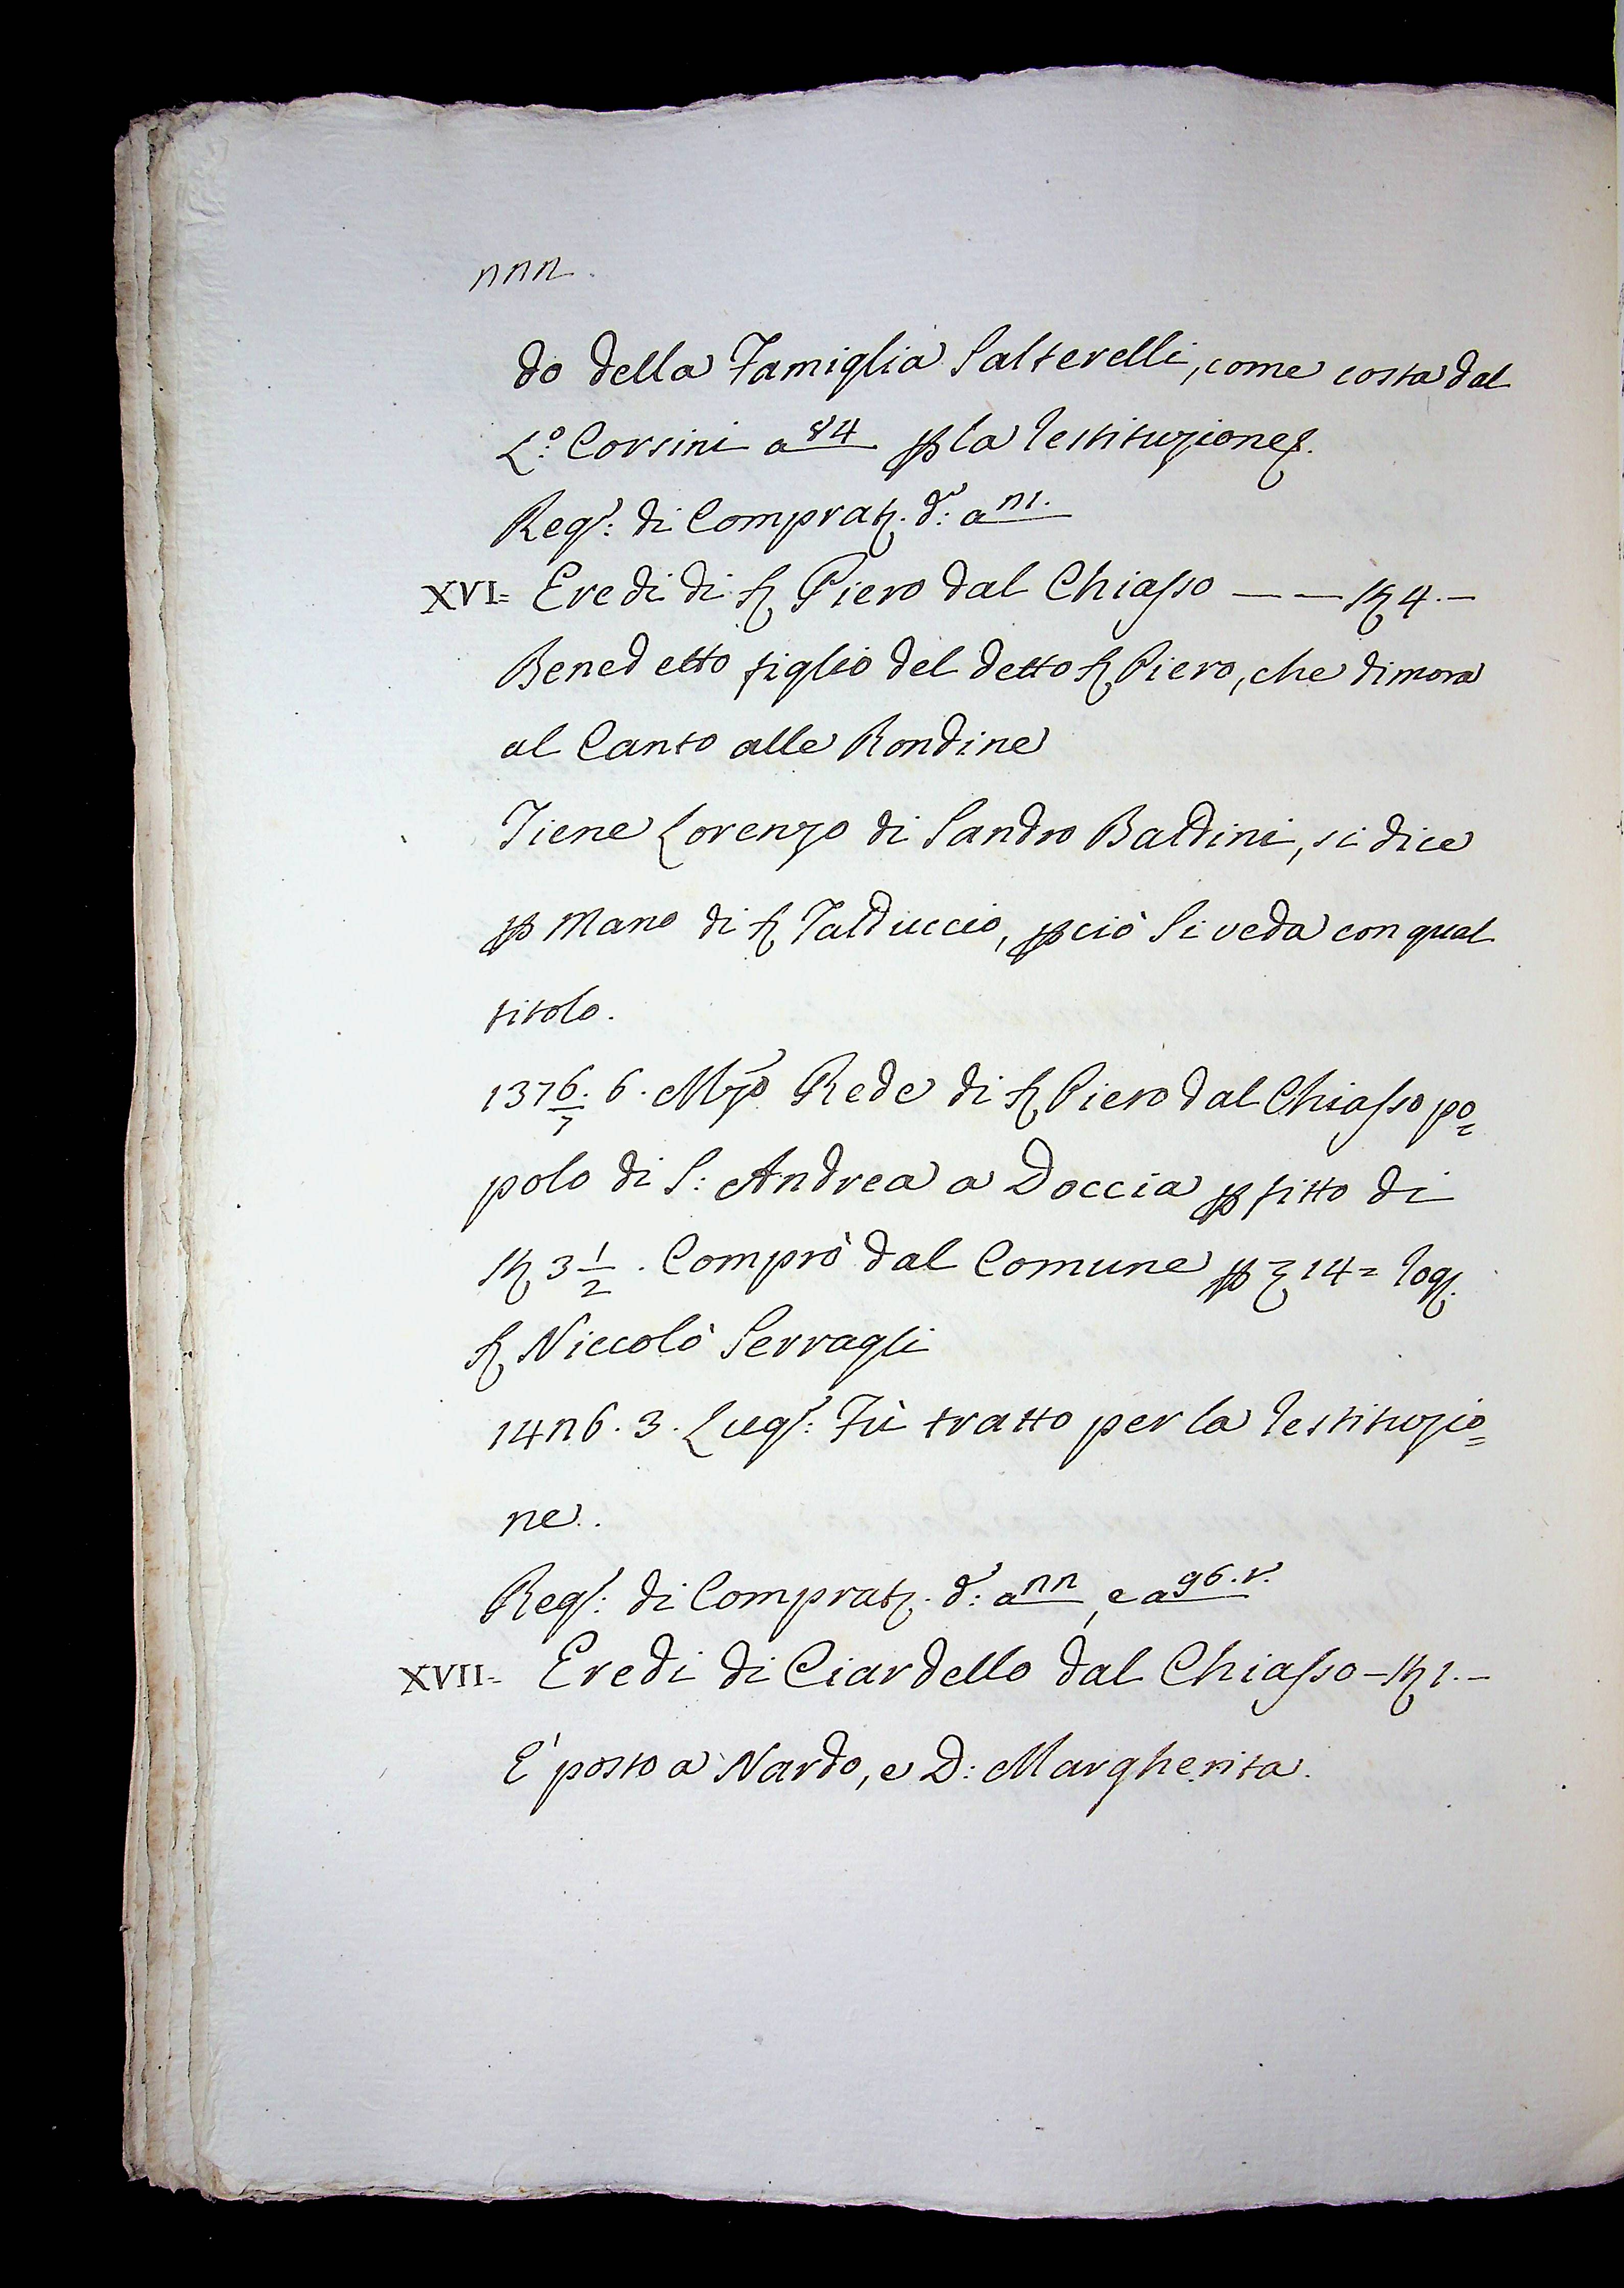 222.
do della Famiglia Salterelli, come costa dal
L.º Corsini a 84 p la restituzione.
Reg.º: di Comprat. d.º: a 21.
XVI= Eredi di S. Piero dal Chiasso — — St 4.—
Benedetto figlio del detto S. Piero, che dimora
al Canto alle Rondine
Tiene Lorenzo di Sandro Baldini, si dice
p Mano di S. Talduccio, pciò Si veda con qual
titolo.
1376/7. 6. Mzo Rede di S. Piero dal Chiasso po=
polo di S: Andrea a Doccia p fitto di
St 3 1/2. Comprò dal Comune p 14= rog.
S. Niccolò Serragli
1426. 3. Lug.º: Fù tratto per la restituzio=
ne.
Reg.º: di Comprat. d.º: a 22, e a 96.v.
XVII= Eredi di Ciardello dal Chiasso — St 1.—
E' posto a Nardo, e D: Margherita.